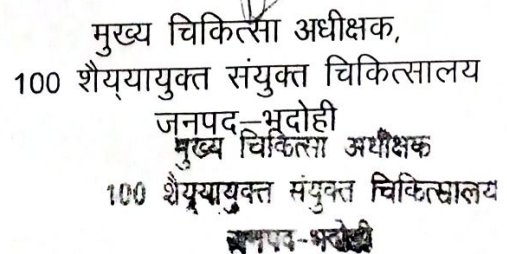 मुख्य चिकित्सा अधीक्षक,
100 शैय्यायुक्त संयुक्त चिकित्सालय
जनपद–भदोही
मुख्य चिकित्सा अधीक्षक
100 शैय्यायुक्त संयुक्त चिकित्सालय
जनपद-भदोही